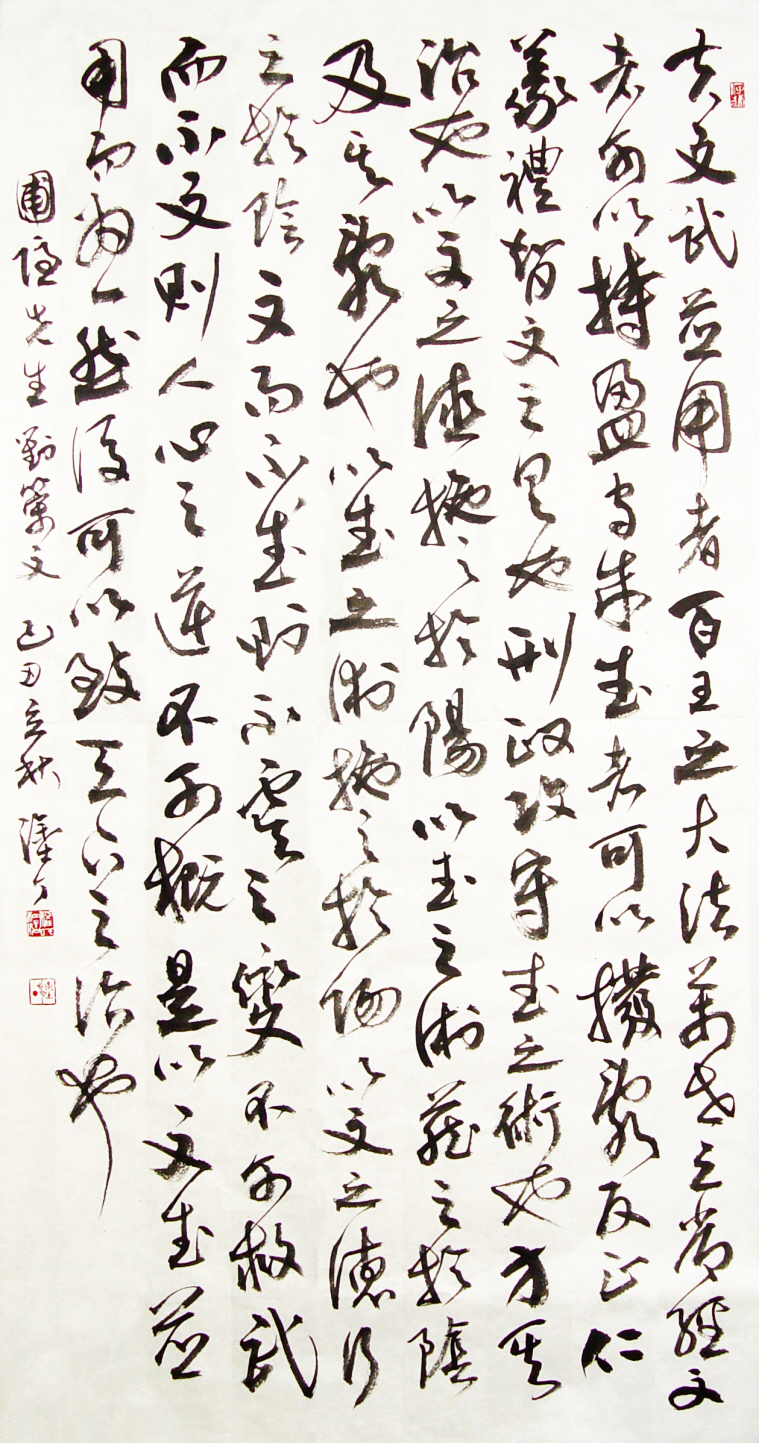 夫文武並用者百王之大法萬世之常經文
者可以持盈守成武者可以撥亂反正仁
義禮智文之具也刑政攻守武之術也方其
治也以文之德施之於陽以武之術藏之於陰
及其亂也以武之術施之於陽以文之德行
之於陰文而不武則不虞之變不可救武
而不文則人心之逆不可概是以文武並
用而為一然後可以致天下之治也
圃隱先生對策文 己丑立秋